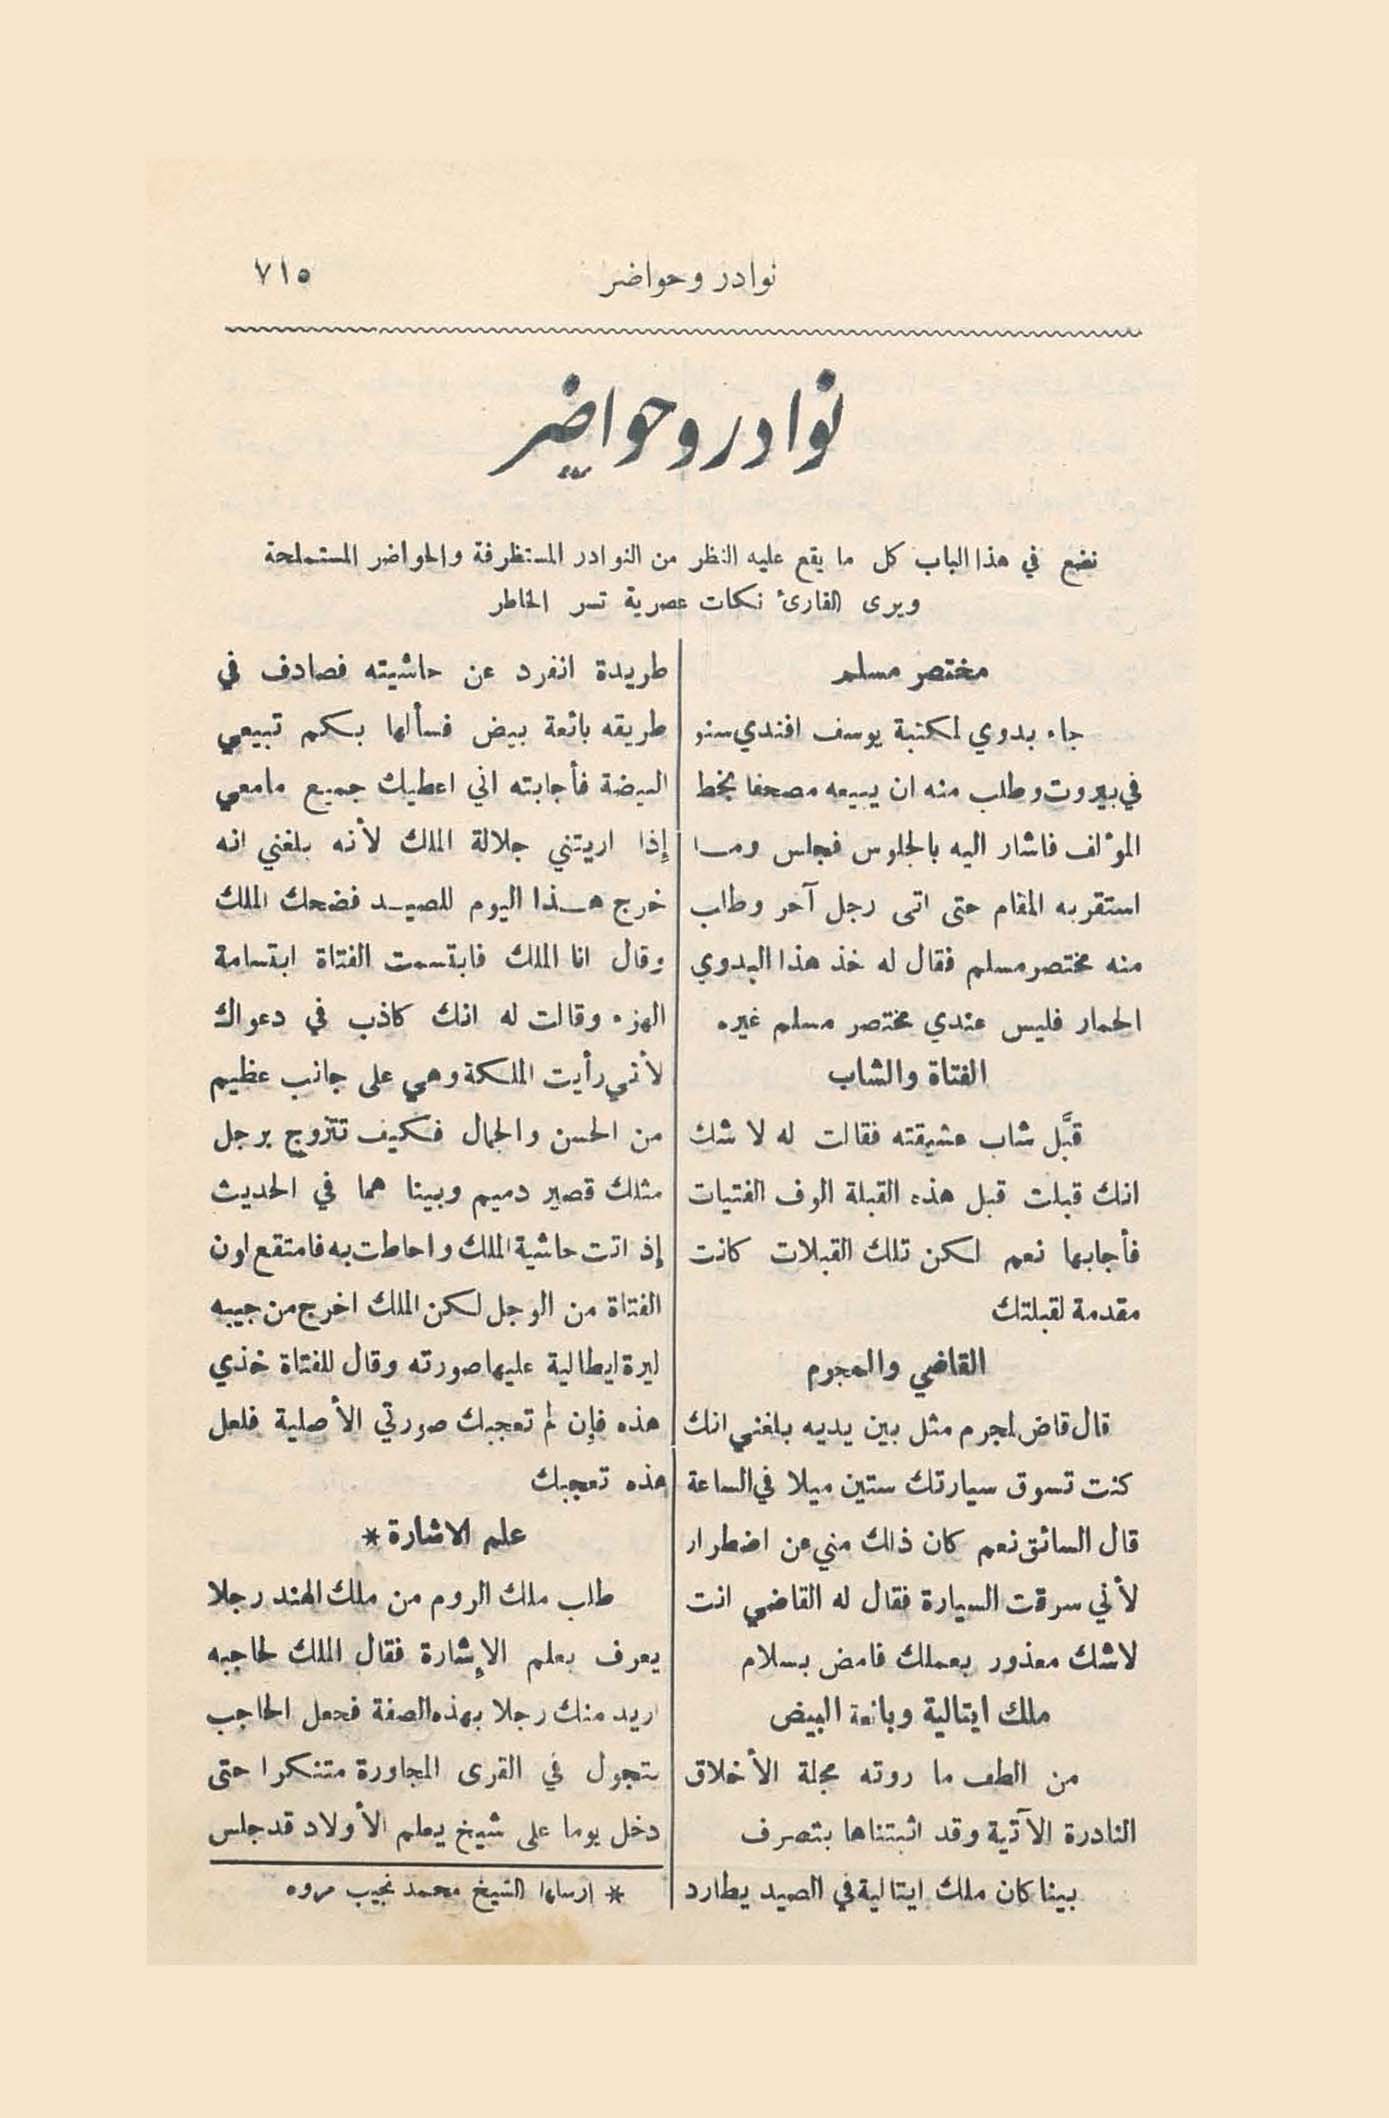 نوادر وحواضر
٧١٥
نوادر وحواضر
نضع في هذا الباب كل ما يقع عليه النظر من النوادر المستظرفة والحواضر المستملحة
ويرى القارئ نكات عصرية تسر الخاطر
مختصر مسلم
جاء بدوي لمكتبة يوسف افندي سنو
في بيروت وطلب منه ان يبيعه مصحفا بخط
المؤلف فاشار اليه بالجلوس فجلس ومــا
استقر به المقام حتى اتى رجل آخر وطلب
منه مختصر مسلم فقال له خذ هذا البدوي
الحمار فليس عندي مختصر مسلم غيره
الفتاة والشاب
قبَّل شاب عشيقته فقالت له لا شك
انك قبلت قبل هذه القبلة الوف الفتيات
فأجابها نعم لكن تلك القبلات كانت
مقدمة لقبلتك
القاضي والمجرم
قال قاض لمجرم مثل بين يديه بلغني انك
كنت تسوق سيارتك ستين ميلا في الساعة
قال السائق نعم كان ذلك مني عن اضطرار
لأني سرقت السيارة فقال له القاضي انت
لا شك معذور بعملك فامض بسلام
ملك ايتالية وبائعة البيض
من الطف ما روته مجلة الأخلاق
النادرة الآتية وقد اثبتناها بتصرف
بينا كان ملك ايتالية في الصيد يطارد
طريدة انفرد عن حاشيته فصادف في
طريقه بائعة بيض فسألها بكم تبيعي
البيضة فأجابته اني اعطيك جميع مامعي
إذا اريتني جلالة الملك لأنه بلغني انه
خرج هــذا اليوم للصيــد فضحك الملك
وقال انا الملك فابتسمت الفتاة ابتسامة
الهزء وقالت له انك كاذب في دعواك
لأنني رأيت الملكة وهي على جانب عظيم
من الحسن والجمال فكيف تتزوج برجل
مثلك قصير دميم وبينا هما في الحديث
إذ اتت حاشية الملك واحاطت به فامتقع لون
الفتاة من الوجل لكن الملك اخرج من جيبه
ليرة ايطالية عليها صورته وقال للفتاة خذي
هذه فإن لم تعجبك صورتي الأصلية فلعل
هذه تعجبك
علم الاشارة *
طلب ملك الروم من ملك الهند رجلا
يعرف بعلم الإشارة فقال الملك لحاجبه
اريد منك رجلا بهذه الصفة فجعل الحاجب
يتجول في القرى المجاورة متنكرا حتى
دخل يوما على شيخ يعلم الأولاد قد جلس
* ارسلها الشيخ محمد نجيب مروه